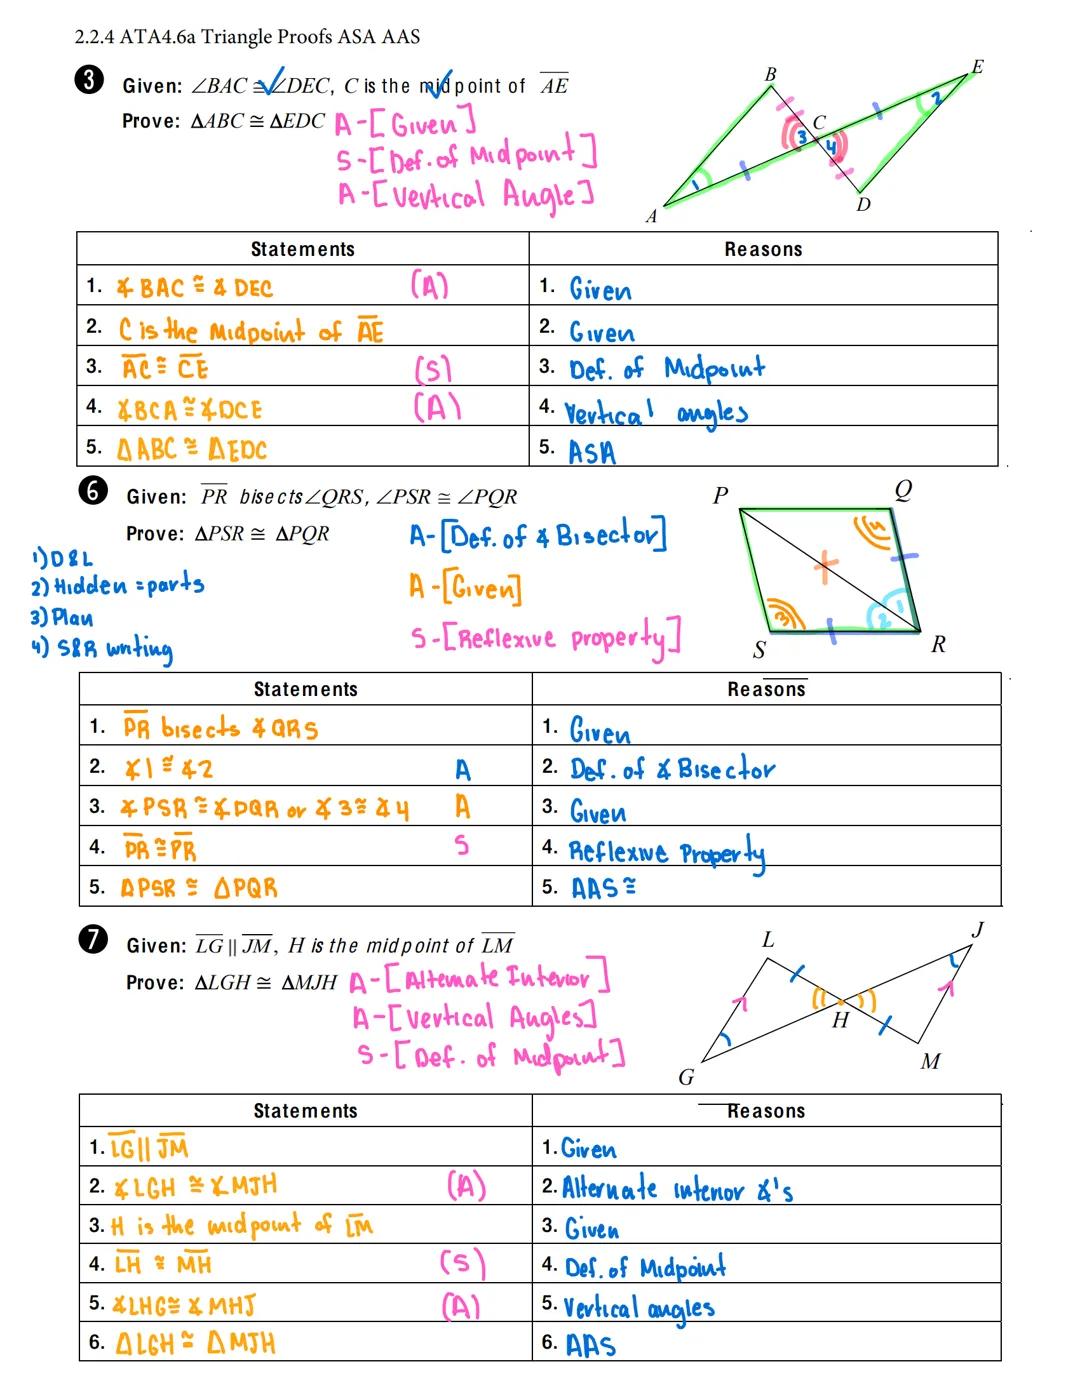 2.2.4 ATA4.6a Triangle Proofs ASA AAS
3 Given: ∠BAC ≅ ∠DEC, C is the midpoint of AE
Prove: ΔABC ≅ ΔEDC
A-[Given]
S-[Def. of Midpoint]
A-[Vertical Angle]
B
E
C
2
3
4
1
A
D
Statements Reasons
1. ∡BAC ≅ ∡DEC (A) 1. Given
2. C is the Midpoint of AE 2. Given
3. AC ≅ CE (S) 3. Def. of Midpoint
4. ∡BCA ≅ ∡DCE (A) 4. Vertical angles
5. ΔABC ≅ ΔEDC 5. ASA
6 Given: PR bisects ∠QRS, ∠PSR ≅ ∠PQR
Prove: ΔPSR ≅ ΔPQR
1) D&L
2) Hidden = parts
3) Plan
4) S&R writing
A-[Def. of ∡ Bisector]
A-[Given]
S-[Reflexive property]
P
Q
4
1
3
2
S
R
Statements Reasons
1. PR bisects ∡QRS 1. Given
2. ∡1 ≅ ∡2 A 2. Def. of ∡ Bisector
3. ∡PSR ≅ ∡PQR or ∡3 ≅ ∡4 A 3. Given
4. PR ≅ PR S 4. Reflexive Property
5. ΔPSR ≅ ΔPQR 5. AAS ≅
7 Given: LG || JM, H is the midpoint of LM
Prove: ΔLGH ≅ ΔMJH
A-[Alternate Interior]
A-[Vertical Angles]
S-[Def. of Midpoint]
L
J
H
G
M
Statements Reasons
1. LG || JM 1. Given
2. ∡LGH ≅ ∡MJH (A) 2. Alternate interior ∡'s
3. H is the midpoint of LM 3. Given
4. LH ≅ MH (S) 4. Def. of Midpoint
5. ∡LHG ≅ ∡MHJ (A) 5. Vertical angles
6. ΔLGH ≅ ΔMJH 6. AAS